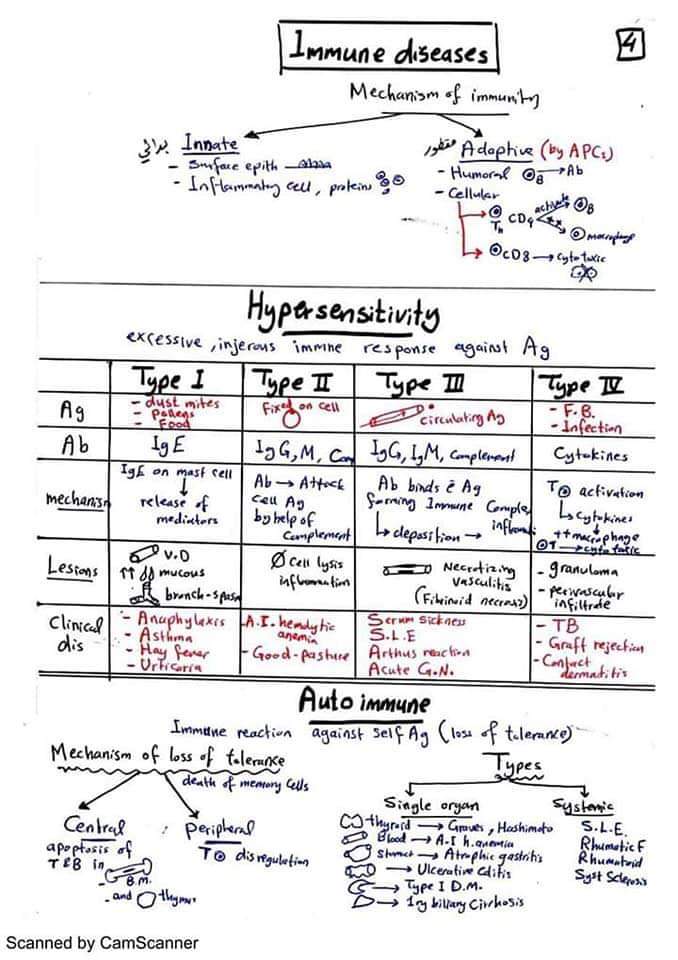 Immune diseases
4
Mechanism of immunity
Innate
- Surface epith
- Inflammatory cell, proteins
Adaptive (by APCs)
- Humoral B → Ab
- Cellular
Th CD4 activate B
macrophage
CD8 → cytotoxic
Hypersensitivity
excessive, injerous immne response against Ag
Type I Type II Type III Type IV
Ag
- dust mites
- Pollens
- Food
Fixed on cell
circulating Ag
- F.B.
- Infection
Ab
IgE
IgG, M, Com
IgG, IgM, Complement
Cytokines
mechanism
IgE on mast cell
↓
release of
mediators
Ab → Attack
cell Ag
by help of
Complement
Ab binds c̄ Ag
forming Immune Complex
↳ deposition →
T activation
↳ Cytokines
++ macrophage
T → cytotoxic
Lesions
V.D
↑↑ mucous
bronch-spasm
Cell lysis
inflammation
Necrotizing
vasculitis
(Fibrinoid necrosis)
- granuloma
- perivascular
infiltrate
Clinical
dis
- Anaphylexis
- Asthma
- Hay fever
- Urticaria
- A.I. hemolytic
anemia
- Good-pasture
Serum sickness
S.L.E
Arthus reaction
Acute G.N.
- TB
- Graft rejection
- Contact
dermatitis
Auto immune
Immune reaction against self Ag (loss of tolerance)
Mechanism of loss of tolerance
death of memory cells
Central
apoptosis of
T & B in
B.M.
- and thymus
Peripheral
T disregulation
Types
Single organ
thyroid → Graves, Hashimoto
Blood → A.I h.anemia
Stomach → Atrophic gastritis
→ Ulcerative Colitis
→ Type I D.M.
→ 1ry billiary Cirrhosis
Systemic
S.L.E.
Rhumatic F
Rhumatoid
Syst Sclerosis
Scanned by CamScanner